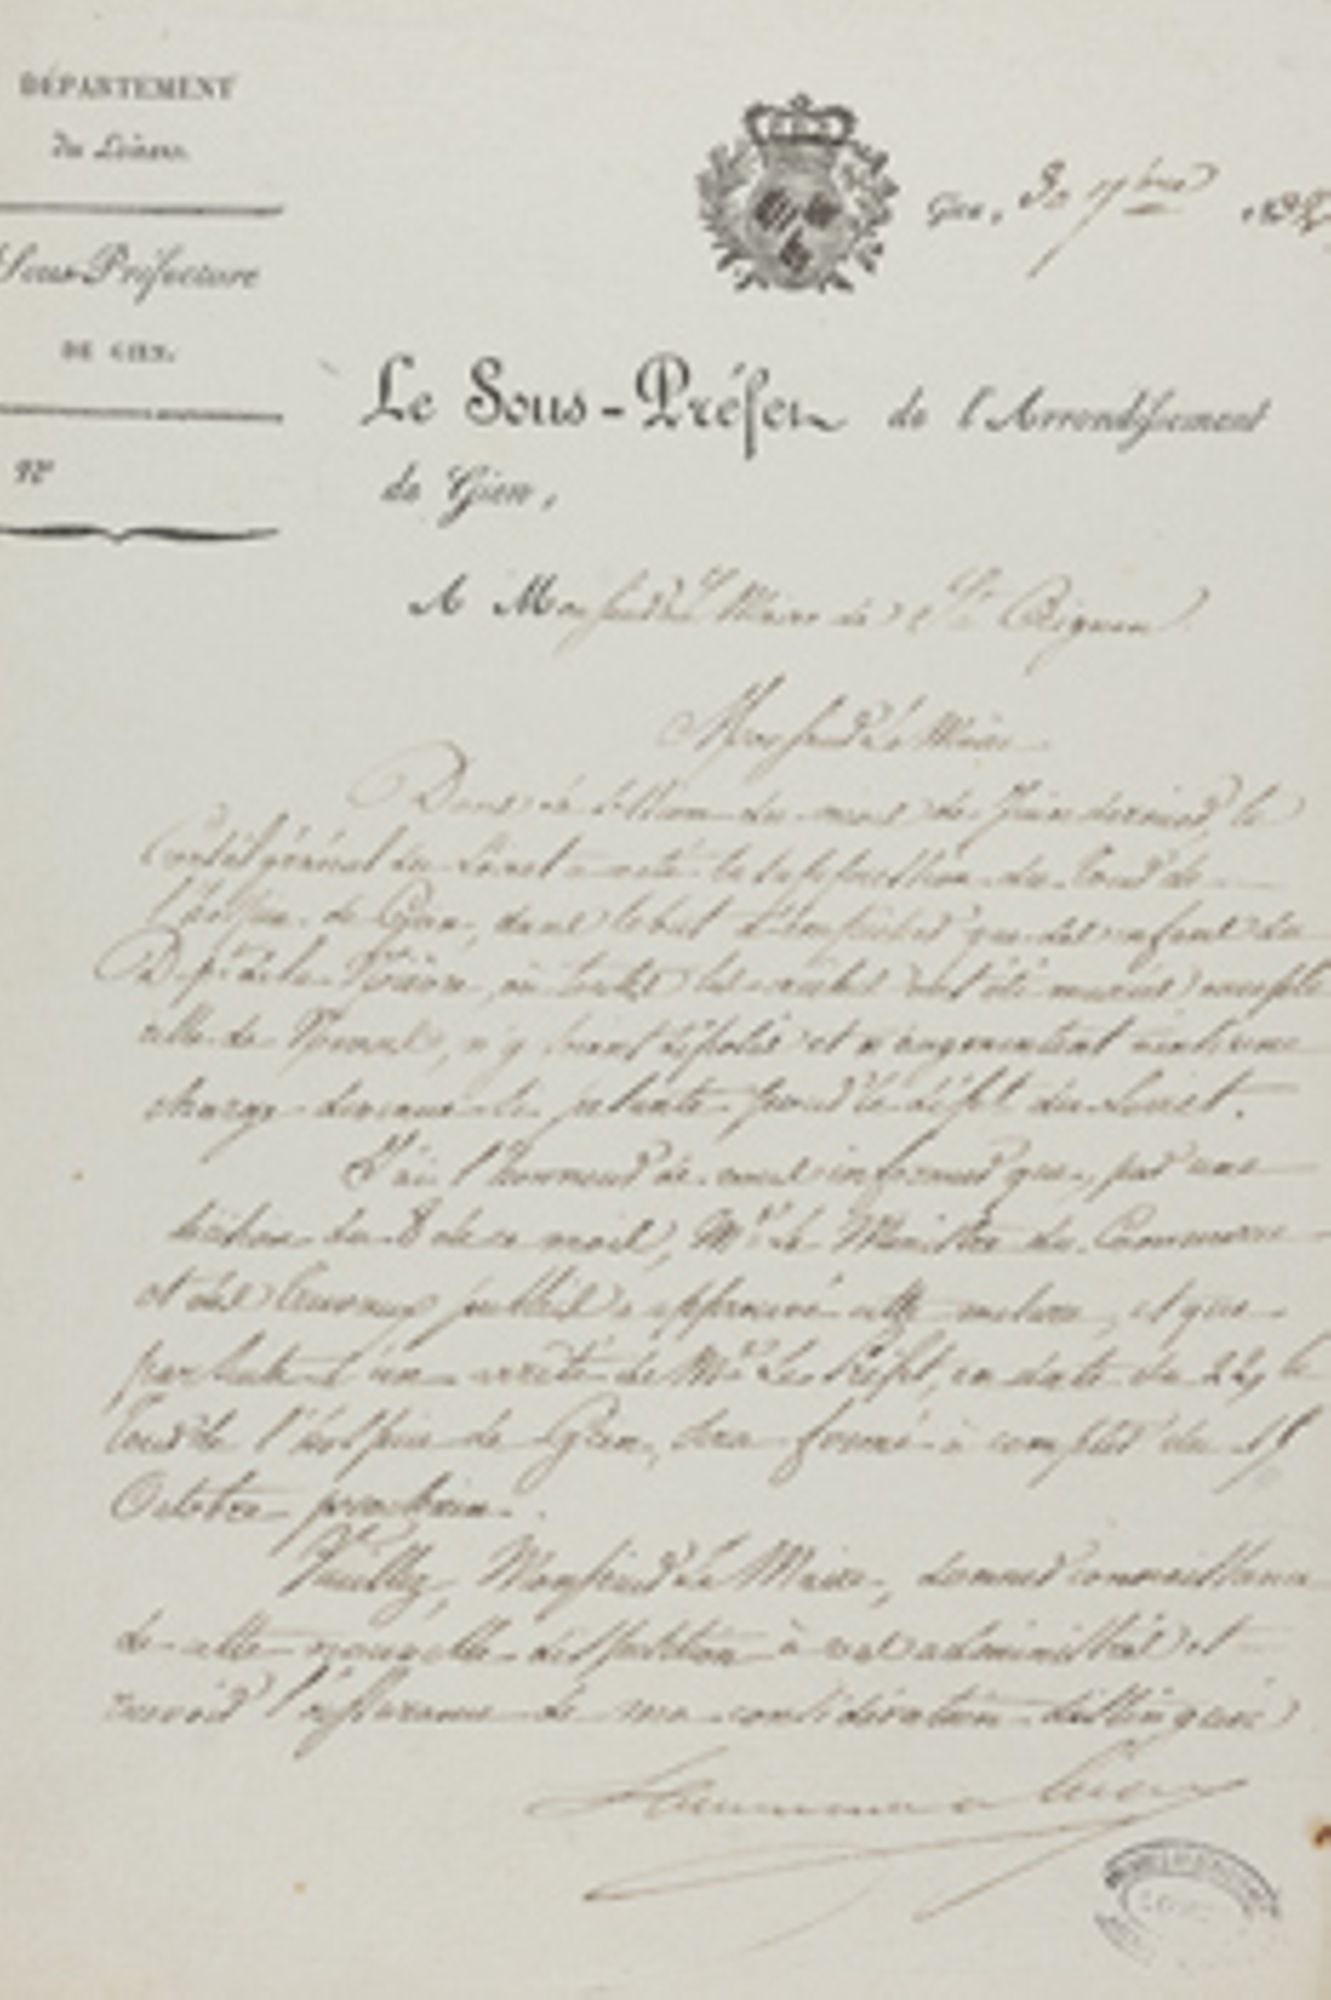 DÉPARTEMENT
du Loiret.
Sous-Préfecture
DE GIEN.
N°
Gien, 30 7bre 183
Le Sous-Préfet de l'Arrondissement
de Gien,
A Monsieur Le Maire de St. Aignan
Monsieur Le Maire
Dans sa session du mois de Juin dernier, le
Conseil général du Loiret a voté la suppression du tour de
l'hospice de Gien, dans le but d'empêcher que des enfans du
Dépt. de la Nièvre, où toutes les autres ont été excepté
celle de Nevers, n'y soient déposés et n'augmentent ainsi une
charge devenue si pesante pour le dépt. du Loiret.
J'ai l'honneur de vous informer que, par une
décision du 8 de ce mois, Mr. Le Ministre du Commerce
et des travaux publics a approuvé cette mesure, et que
par suite d'un arrêté de Mr. Le Préfet, en date du 22, le
tour de l'hospice de Gien, sera fermé à compter du 15
Octobre prochain.
Veuillez, Monsieur Le Maire, donner connaissance
de cette nouvelle disposition à vos administrés et
recevoir l'assurance de ma considération distinguée